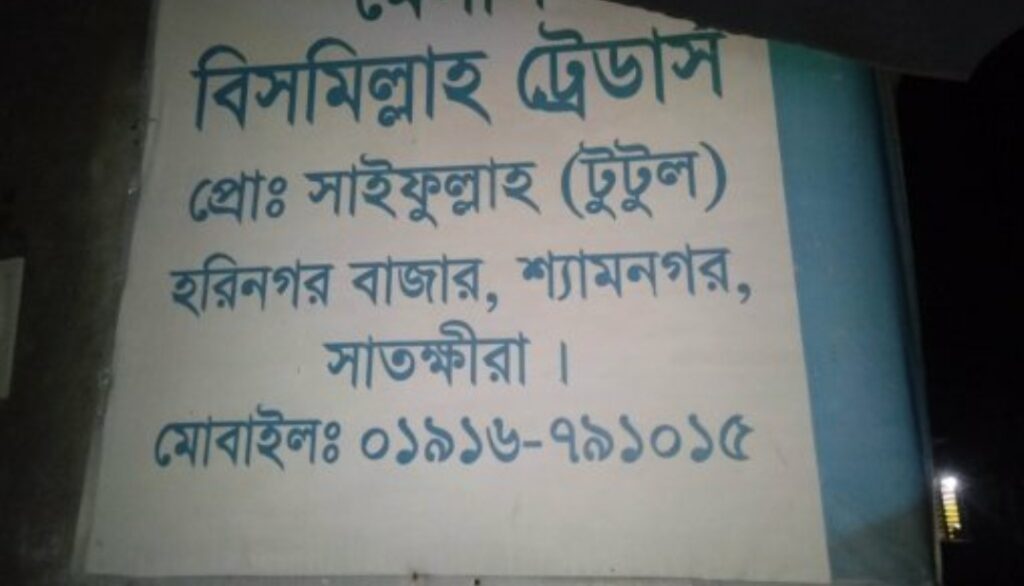 বিসমিল্লাহ ট্রেডার্স
প্রোঃ সাইফুল্লাহ (টুটুল)
হরিনগর বাজার, শ্যামনগর,
সাতক্ষীরা ।
মোবাইলঃ ০১৯১৬-৭৯১০১৫